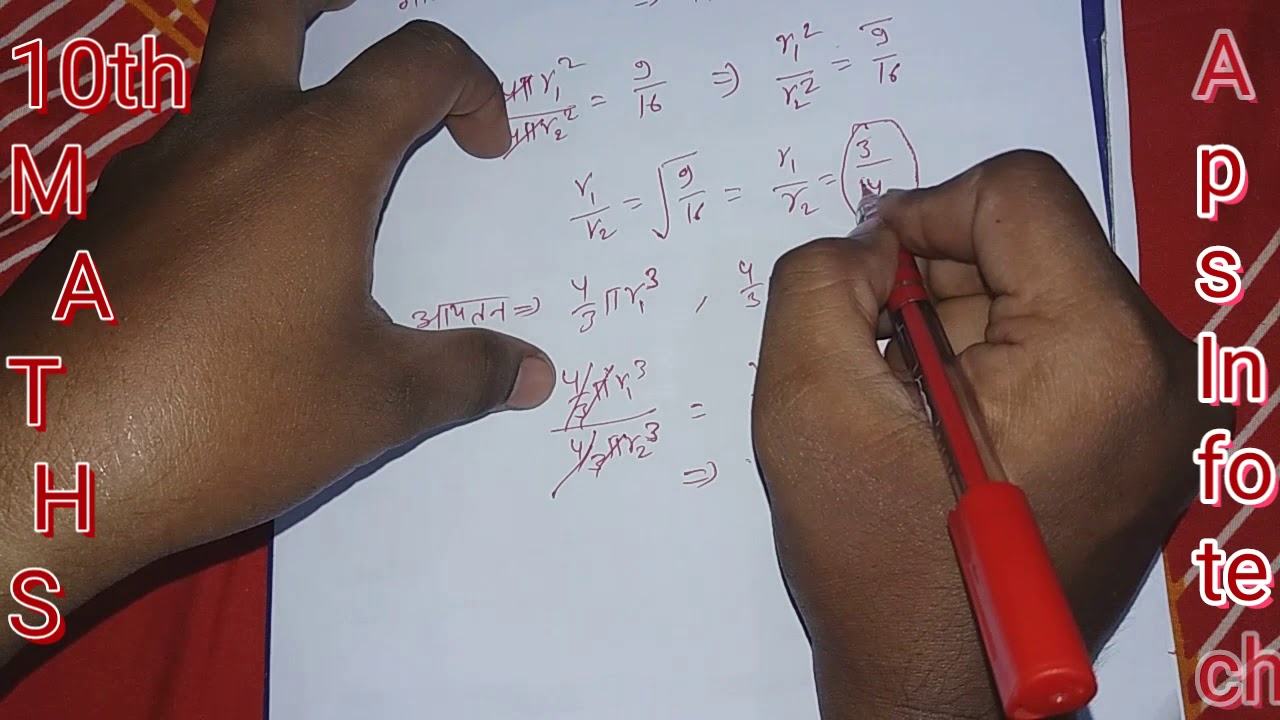 10th
M
A
T
H
S
4πr₁²/4πr₂² = 9/16 ⇒ r₁²/r₂² = 9/16
r₁/r₂ = √9/16 = r₁/r₂ = 3/4
आयतन ⇒ 4/3 πr₁³ , 4/3
4/3 πr₁³ / 4/3 πr₂³ =
⇒
A
p
s
In
fo
te
ch